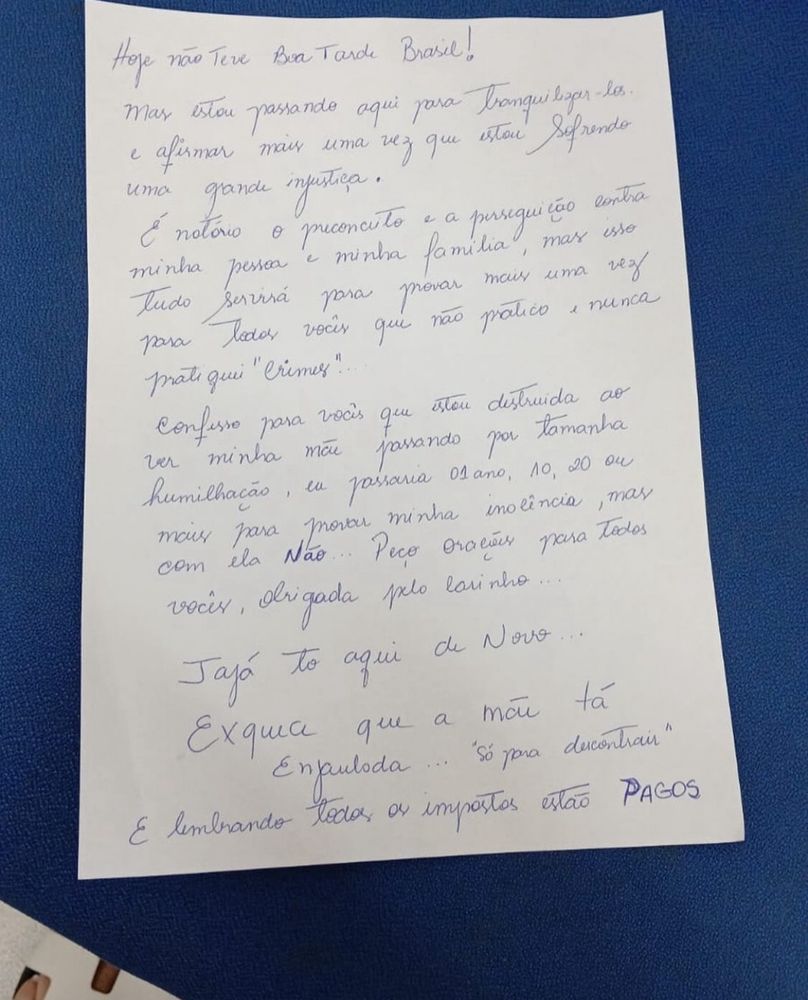 Hoje não Teve Boa Tarde Brasil!
Mas estou passando aqui para Tranquilizar-los.
e afirmar mais uma vez que estou Sofrendo
uma grande injustiça.
É notório o preconceito e a perseguição contra
minha pessoa e minha família, mas isso
tudo servirá para provar mais uma vez
para Todos vocês que não pratico e nunca
pratiquei "Crimes"...
Confesso para vocês que estou destruida ao
ver minha mãe passando por tamanha
humilhação, eu passaria 01 ano, 10, 20 ou
mais para provar minha inocência, mas
com ela Não... Peço orações para todos
vocês, Obrigada pelo Carinho...
Jajá to aqui de Novo...
Exquece que a mãe tá
Enjaulada... "só para descontrair"
E lembrando todos os impostos estão PAGOS